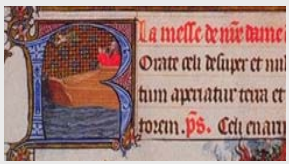 La messe de nr̄e dame
Rorate celi desuper et nu
bum aperiatur terra et
torem. ps. Celi enarr